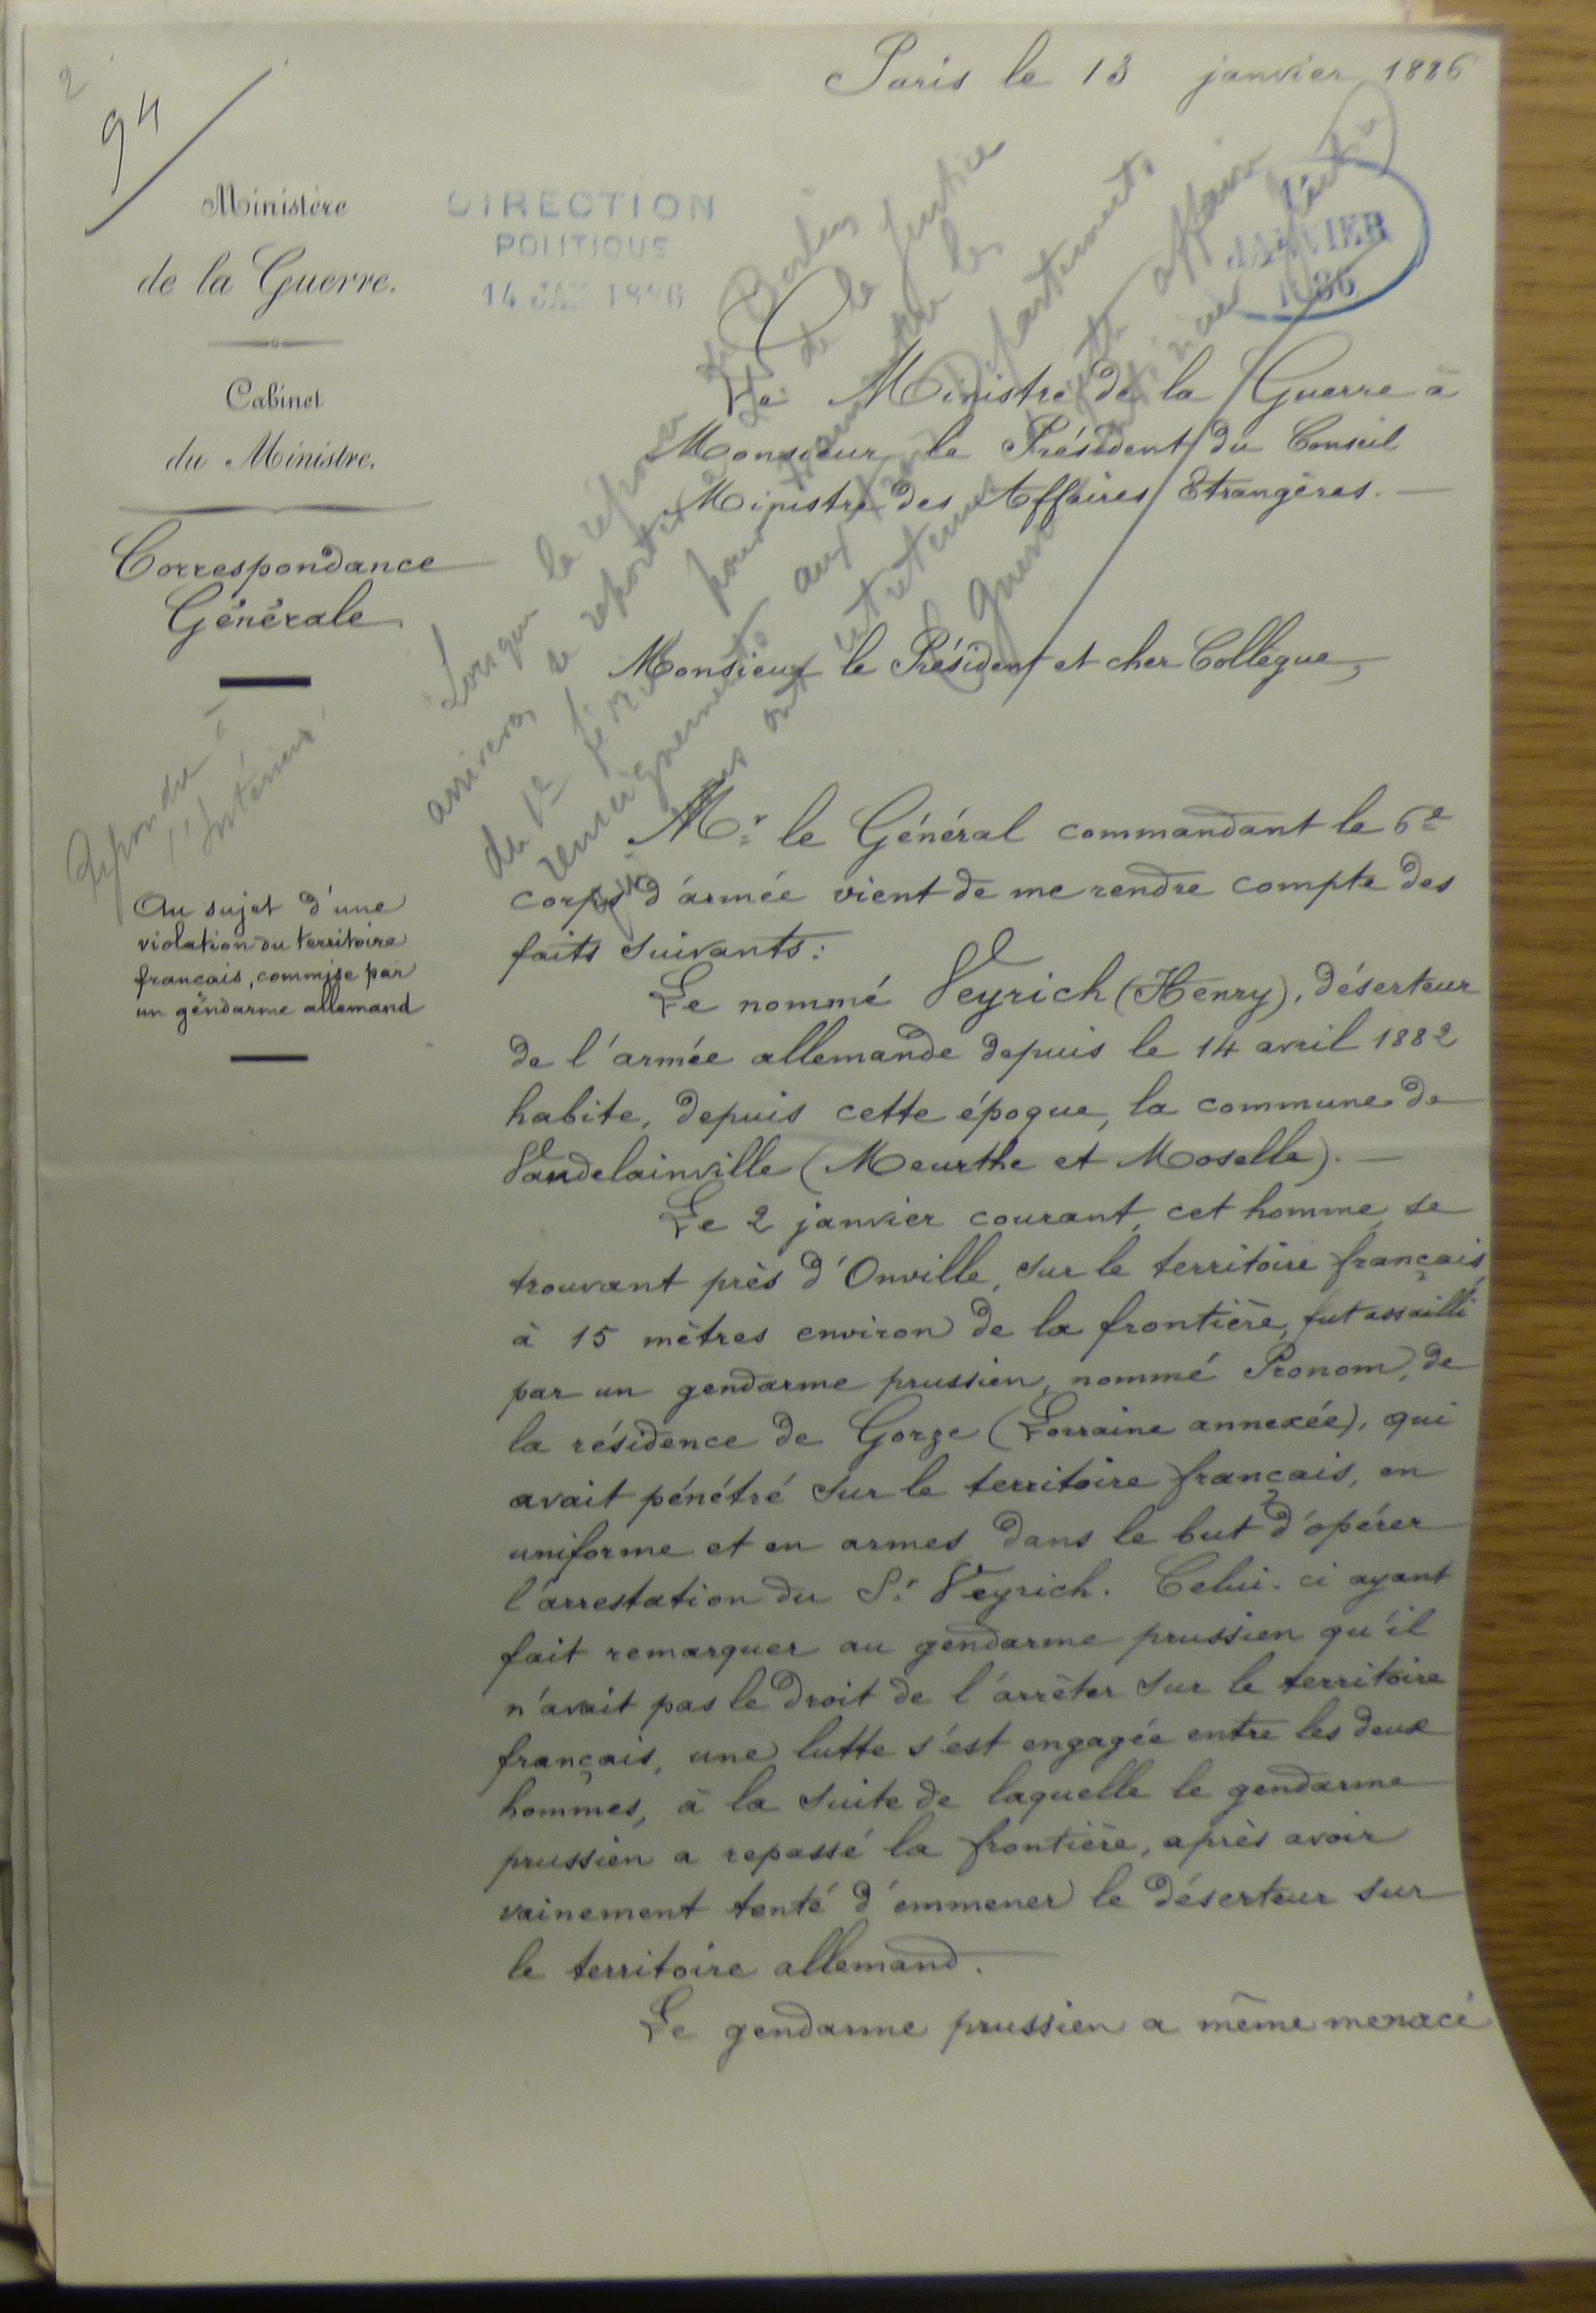 Paris le 13 janvier 1886
2
94
Ministère
de la Guerre.
Cabinet
du Ministre.
Correspondance
Générale
DIRECTION
POLITIQUE
14 JAN 1886
JANVIER
86
Répondu à
l'Intérieur
Au sujet d'une
violation du territoire
français, commise par
un gendarme allemand
Lorsque la réponse de Berlin
arrivera, se reporter à de la Justice
du 1er février pour transmettre les
renseignements aux trois Départements
qui nous ont entretenus de cette affaire
Guerre
Le Ministre de la Guerre à
Monsieur le Président du Conseil
Ministre des Affaires Etrangères.
Monsieur le Président et cher Collègue,
Mr le Général commandant le 6e
corps d'armée vient de me rendre compte des
faits suivants:
Le nommé Veyrich (Henry), déserteur
de l'armée allemande depuis le 14 avril 1882
habite, depuis cette époque, la commune de
Vandelainville (Meurthe et Moselle). —
Le 2 janvier courant, cet homme, se
trouvant près d'Onville, sur le territoire français,
à 15 mètres environ de la frontière, fut assailli
par un gendarme prussien, nommé Pronom, de
la résidence de Gorze (Lorraine annexée), qui
avait pénétré sur le territoire français, en
uniforme et en armes, dans le but d'opérer
l'arrestation du Sr Veyrich. Celui-ci ayant
fait remarquer au gendarme prussien qu'il
n'avait pas le droit de l'arrêter sur le territoire
français, une lutte s'est engagée entre les deux
hommes, à la suite de laquelle le gendarme
prussien a repassé la frontière, après avoir
vainement tenté d'emmener le déserteur sur
le territoire allemand.
Le gendarme prussien a même menacé